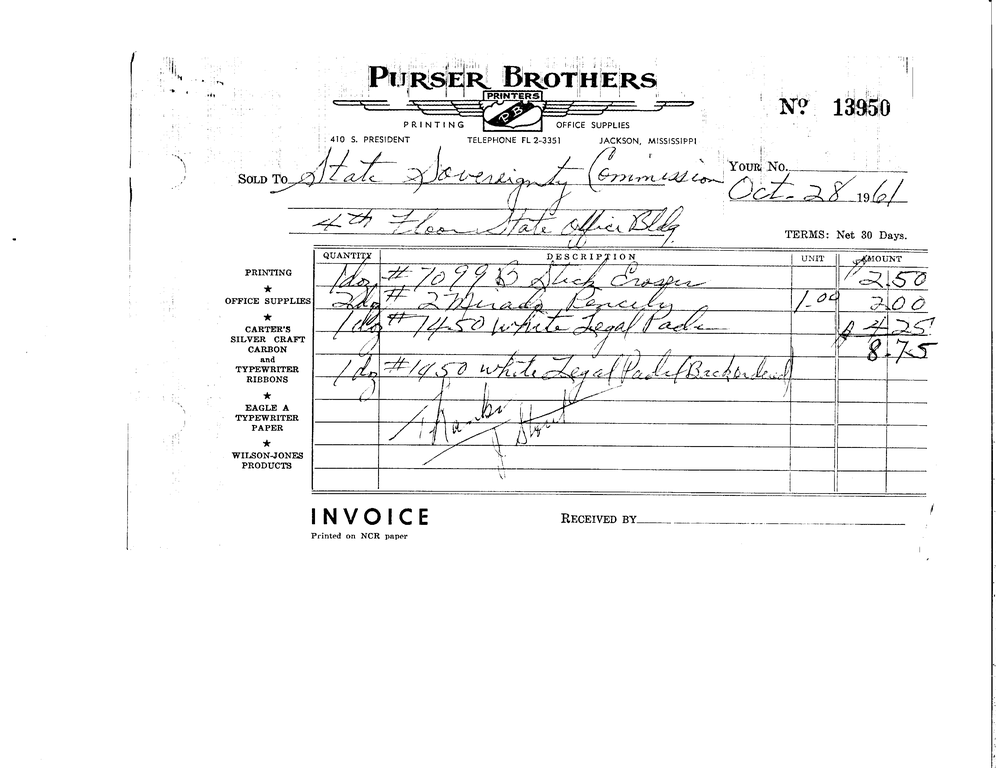 PURSER BROTHERS
PRINTERS
PB
PRINTING OFFICE SUPPLIES
410 S. PRESIDENT TELEPHONE FL 2-3351 JACKSON, MISSISSIPPI
Nº 13950
SOLD TO State Sovereignty Commission YOUR NO.
Oct. 28 1961
4th Floor State Office Bldg.
TERMS: Net 30 Days.
QUANTITY DESCRIPTION UNIT AMOUNT
1 doz # 7099 B Stick Eraser 2.50
2 dz # 2 Mirado Pencils 1.00 2 00
1 dz # 1450 White Legal Pads 4 25
8.75
1 dz # 1450 White Legal Pads (Backordered)
Thanks
PRINTING
★
OFFICE SUPPLIES
★
CARTER'S
SILVER CRAFT
CARBON
and
TYPEWRITER
RIBBONS
★
EAGLE A
TYPEWRITER
PAPER
★
WILSON-JONES
PRODUCTS
INVOICE
Printed on NCR paper
RECEIVED BY